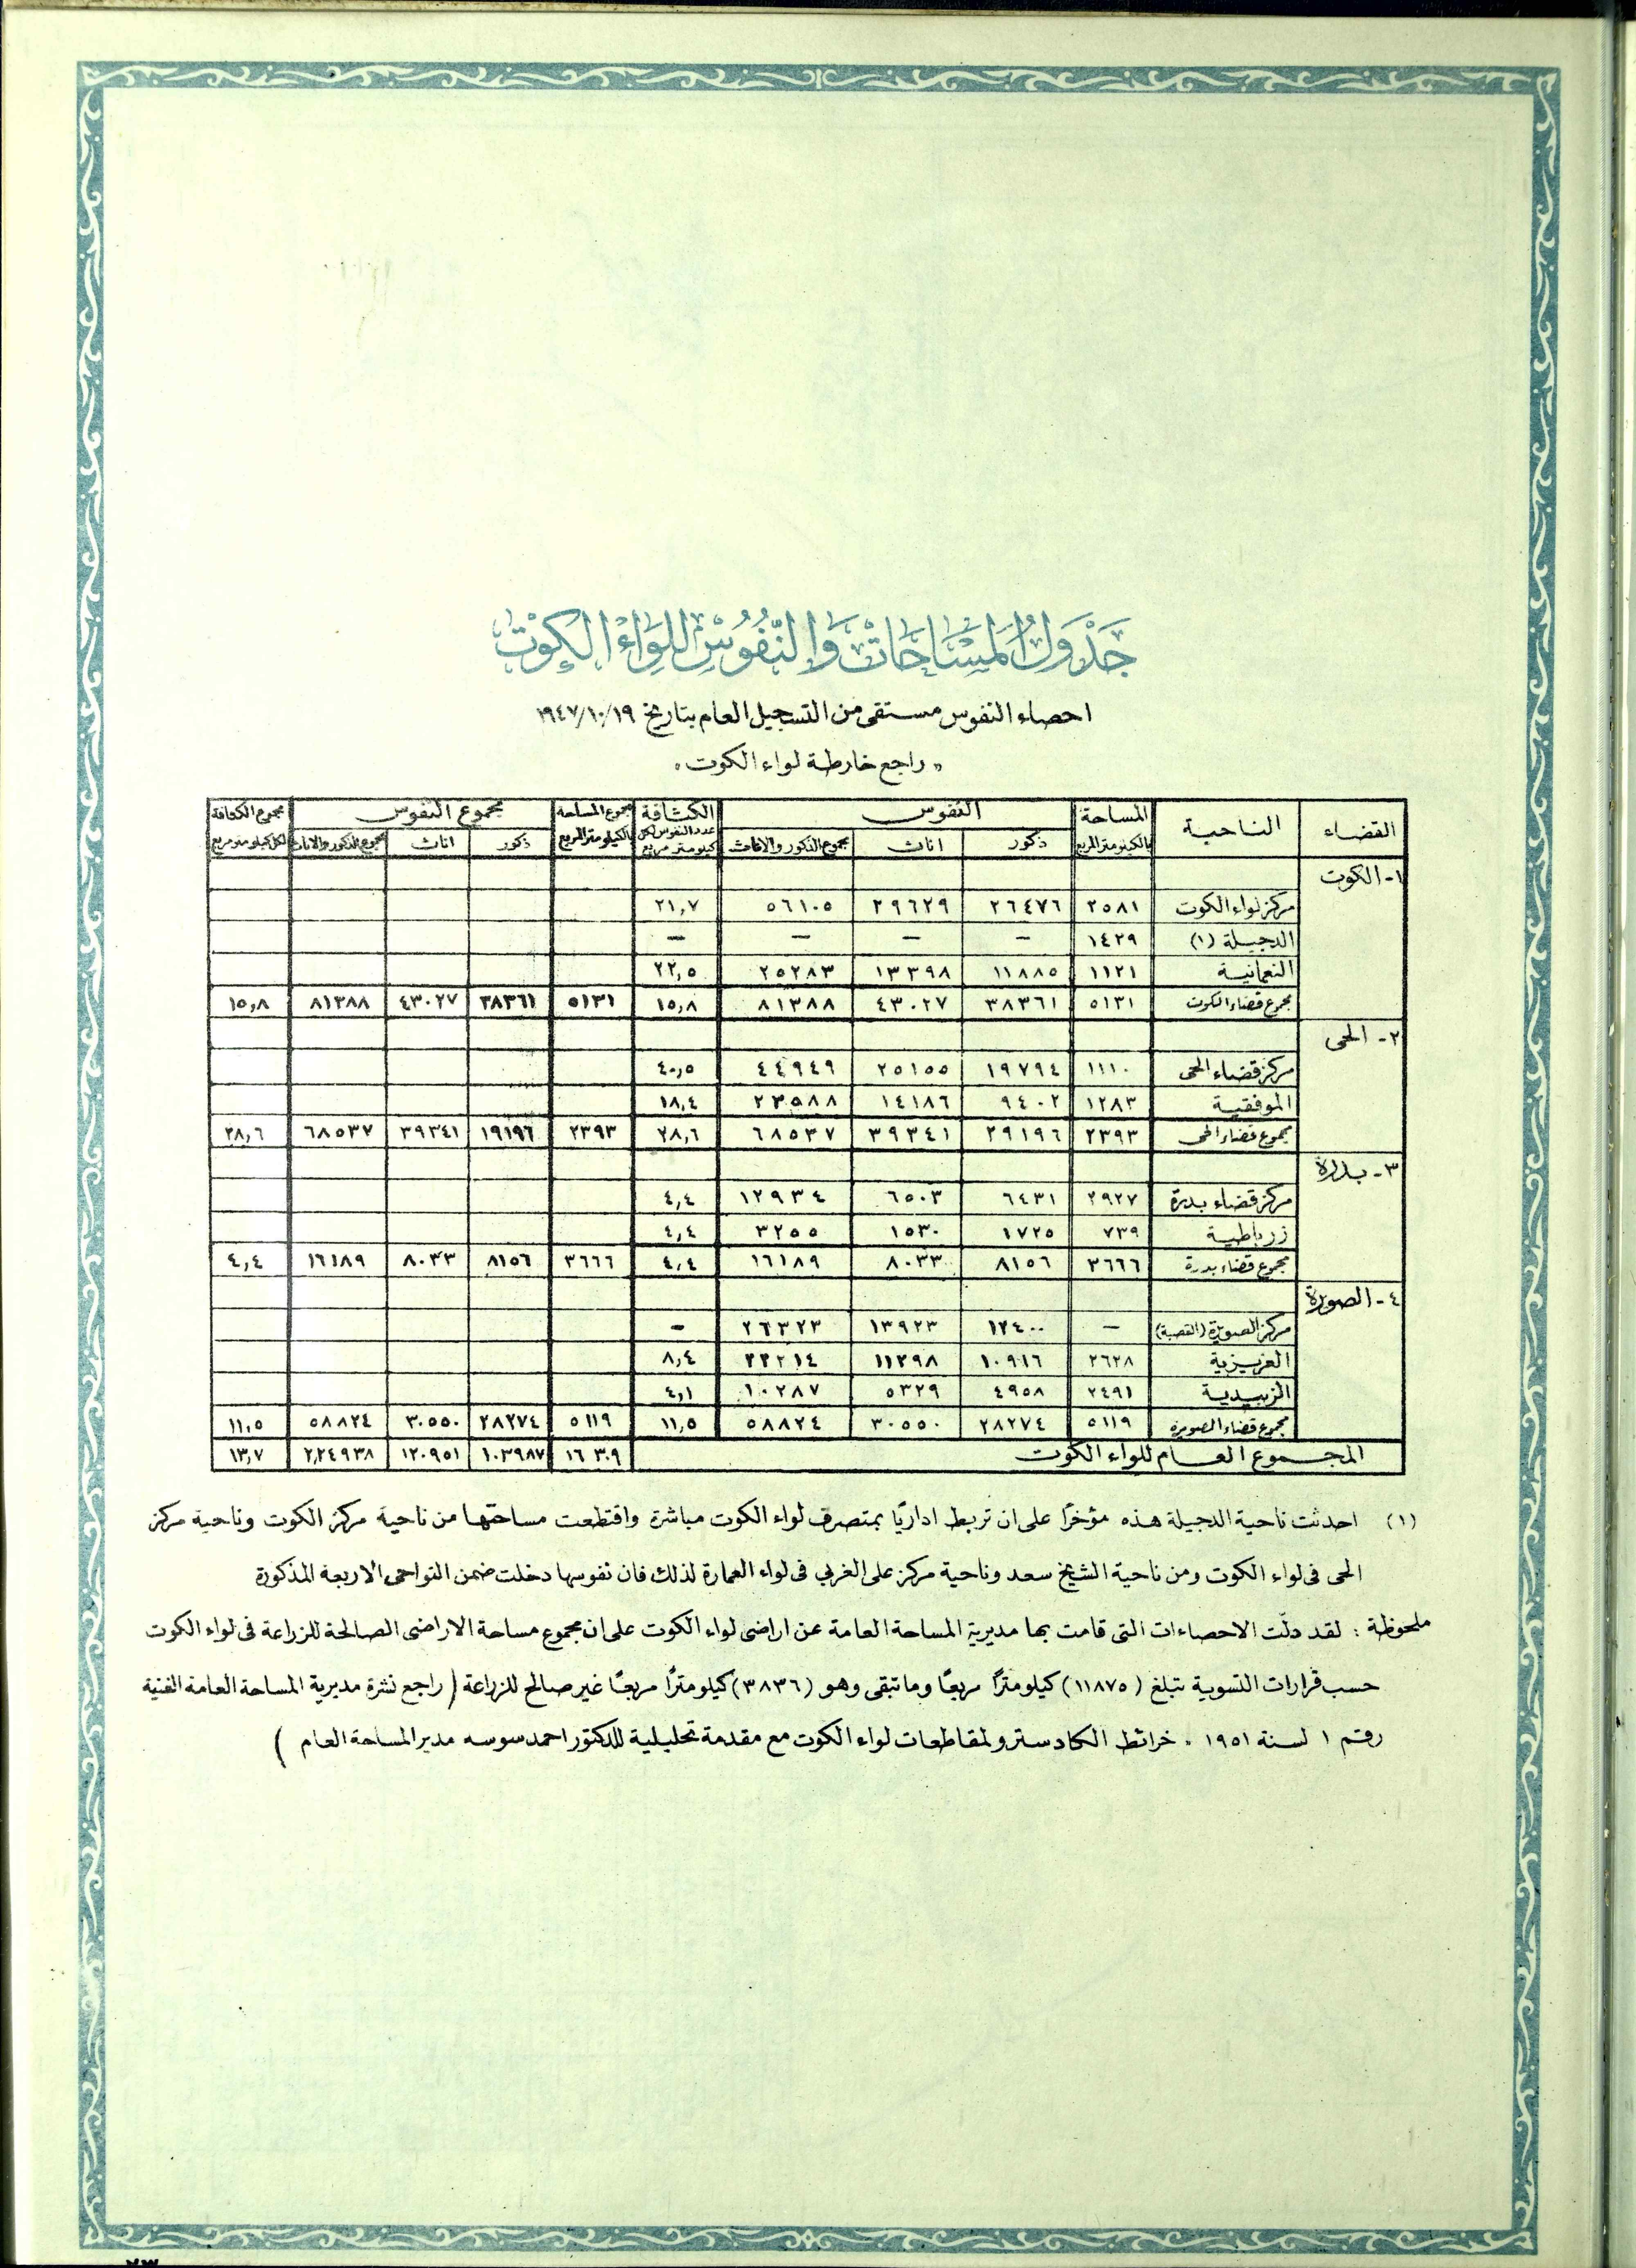 جَدْوَلُ الْمَسَاحَاتْ وَالنُّفُوسْ لِلِوَاءْ الْكُوْتْ
احصاء النفوس مستقى من التسجيل العام بتاريخ ١٩٤٧/١٠/١٩
« راجع خارطة لواء الكوت »
القضاء | الناحية | المساحة بالكيلومتر المربع | النفوس | الكثافة عدد النفوس لكل كيلومتر مربع | مجموع المساحة بالكيلومتر المربع | مجموع النفوس | مجموع الكثافة لكل كيلومتر مربع
ذكور | اناث | مجموع الذكور والاناث | ذكور | اناث | مجموع الذكور والاناث
١- الكوت
مركز لواء الكوت | ٢٥٨١ | ٢٦٤٧٦ | ٢٩٦٢٩ | ٥٦١٠٥ | ٢١,٧
الدجيلة (١) | ١٤٢٩ | — | — | — | —
النعمانية | ١١٢١ | ١١٨٨٥ | ١٣٣٩٨ | ٢٥٢٨٣ | ٢٢,٥
مجموع قضاء الكوت | ٥١٣١ | ٣٨٣٦١ | ٤٣٠٢٧ | ٨١٣٨٨ | ١٥,٨ | ٥١٣١ | ٣٨٣٦١ | ٤٣٠٢٧ | ٨١٣٨٨ | ١٥,٨
٢- الحى
مركز قضاء الحى | ١١١٠ | ١٩٧٩٤ | ٢٥١٥٥ | ٤٤٩٤٩ | ٤٠,٥
الموفقية | ١٢٨٣ | ٩٤٠٢ | ١٤١٨٦ | ٢٣٥٨٨ | ١٨,٤
مجموع قضاء الحى | ٢٣٩٣ | ٢٩١٩٦ | ٣٩٣٤١ | ٦٨٥٣٧ | ٢٨,٦ | ٢٣٩٣ | ١٩١٩٦ | ٣٩٣٤١ | ٦٨٥٣٧ | ٢٨,٦
٣- بدرة
مركز قضاء بدرة | ٢٩٢٧ | ٦٤٣١ | ٦٥٠٣ | ١٢٩٣٤ | ٤,٤
زرباطية | ٧٣٩ | ١٧٢٥ | ١٥٣٠ | ٣٢٥٥ | ٤,٤
مجموع قضاء بدرة | ٣٦٦٦ | ٨١٥٦ | ٨٠٣٣ | ١٦١٨٩ | ٤,٤ | ٣٦٦٦ | ٨١٥٦ | ٨٠٣٣ | ١٦١٨٩ | ٤,٤
٤- الصويرة
مركز الصويرة (القصبة) | — | ١٢٤٠٠ | ١٣٩٢٣ | ٢٦٣٢٣ | -
العزيزية | ٢٦٢٨ | ١٠٩١٦ | ١١٢٩٨ | ٢٢٢١٤ | ٨,٤
الزبيدية | ٢٤٩١ | ٤٩٥٨ | ٥٣٢٩ | ١٠٢٨٧ | ٤,١
مجموع قضاء الصويرة | ٥١١٩ | ٢٨٢٧٤ | ٣٠٥٥٠ | ٥٨٨٢٤ | ١١,٥ | ٥١١٩ | ٢٨٢٧٤ | ٣٠٥٥٠ | ٥٨٨٢٤ | ١١,٥
المجموع العام للواء الكوت | ١٦٣٠٩ | ١٠٣٩٨٧ | ١٢٠٩٥١ | ٢,٢٤٩٣٨ | ١٣,٧
(١) احدثت ناحية الدجيلة هذه مؤخرًا على ان تربط اداريًا بمتصرف لواء الكوت مباشرة واقتطعت مساحتها من ناحية مركز الكوت وناحية مركز
الحى فى لواء الكوت ومن ناحية الشيخ سعد وناحية مركز على الغربي فى لواء العمارة لذلك فان نفوسها دخلت ضمن النواحى الاربعة المذكورة
ملحوظة : لقد دلّت الاحصاءات التى قامت بها مديرية المساحة العامة عن اراضى لواء الكوت على ان مجموع مساحة الاراضى الصالحة للزراعة فى لواء الكوت
حسب قرارات التسوية تبلغ (١١٨٧٥) كيلومترًا مربعًا وما تبقى وهو (٣٨٣٦) كيلومترًا مربعًا غير صالح للزراعة ( راجع نشرة مديرية المساحة العامة الفنية
رقم ١ لسنة ١٩٥١ . خرائط الكادسترو لمقاطعات لواء الكوت مع مقدمة تحليلية للدكتور احمد سوسه مدير المساحة العام )